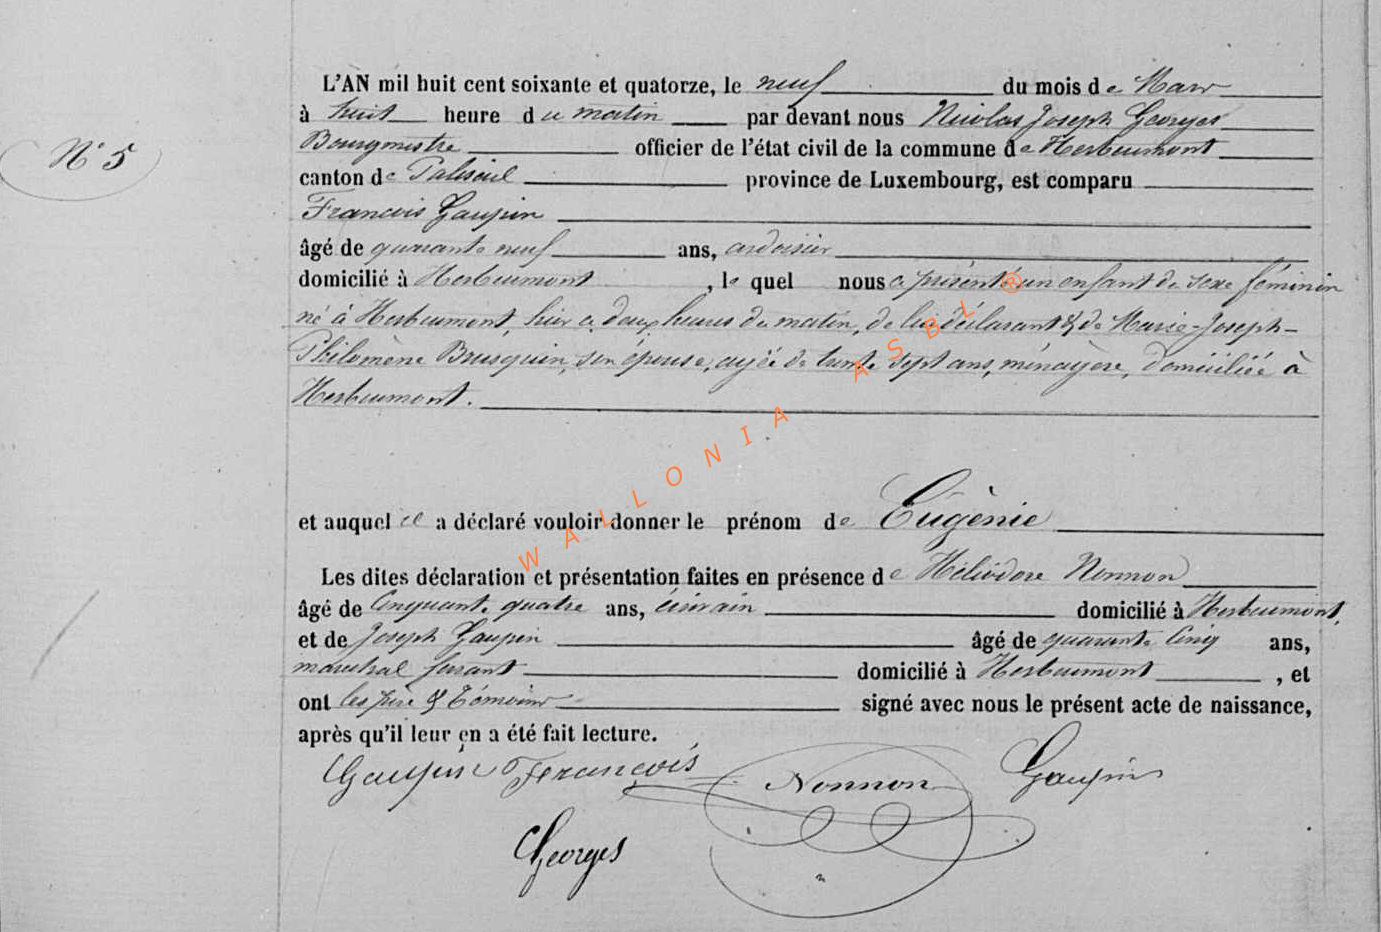 L'AN mil huit cent soixante et quatorze, le neuf du mois de Mars
à huit heure du matin par devant nous Nicolas Joseph Georges
N° 5
Bourgmestre officier de l'état civil de la commune de Herbeumont
canton de Paliseul province de Luxembourg, est comparu
François Gaupin
âgé de quarante neuf ans, ardoisier
domicilié à Herbeumont, le quel nous a présenté un enfant du sexe féminin
né à Herbeumont, hier à deux heures du matin, de lui déclarant & de Marie-Joseph-
Philomène Bursquin, son épouse, agée de trente sept ans, ménagère, domiciliée à
Herbeumont.
et auquel il a déclaré vouloir donner le prénom de Eugènie
Les dites déclaration et présentation faites en présence de Héliodore Nonnon
âgé de Cinquante quatre ans, écrivain domicilié à Herbeumont,
et de Joseph Gaupin âgé de quarante Cinq ans,
maréchal ferant domicilié à Herbeumont, et
ont les père & témoins signé avec nous le présent acte de naissance,
après qu'il leur en a été fait lecture.
Gaupin François Nonnon Gaupin
Georges
WALLONIA ASBL ®